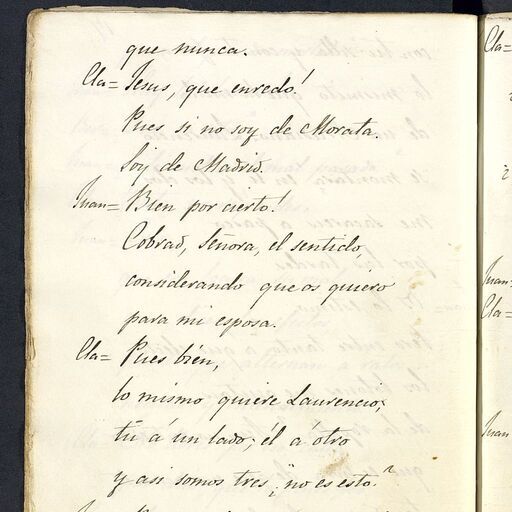 que nunca.
Cla= Jesus, que enredo!
Pues si no soy de Morata.
Soy de Madrid.
Juan= Bien por cierto!
Cobrad, Señora, el sentido,
considerando que os quiero
para mi esposa.
Cla= Pues bién,
lo mismo quiere Laurencio;
tú á un lado; él á otro
y asi somos tres; ¿no es esto?
Cla=
Juan=
Cla=
Juan